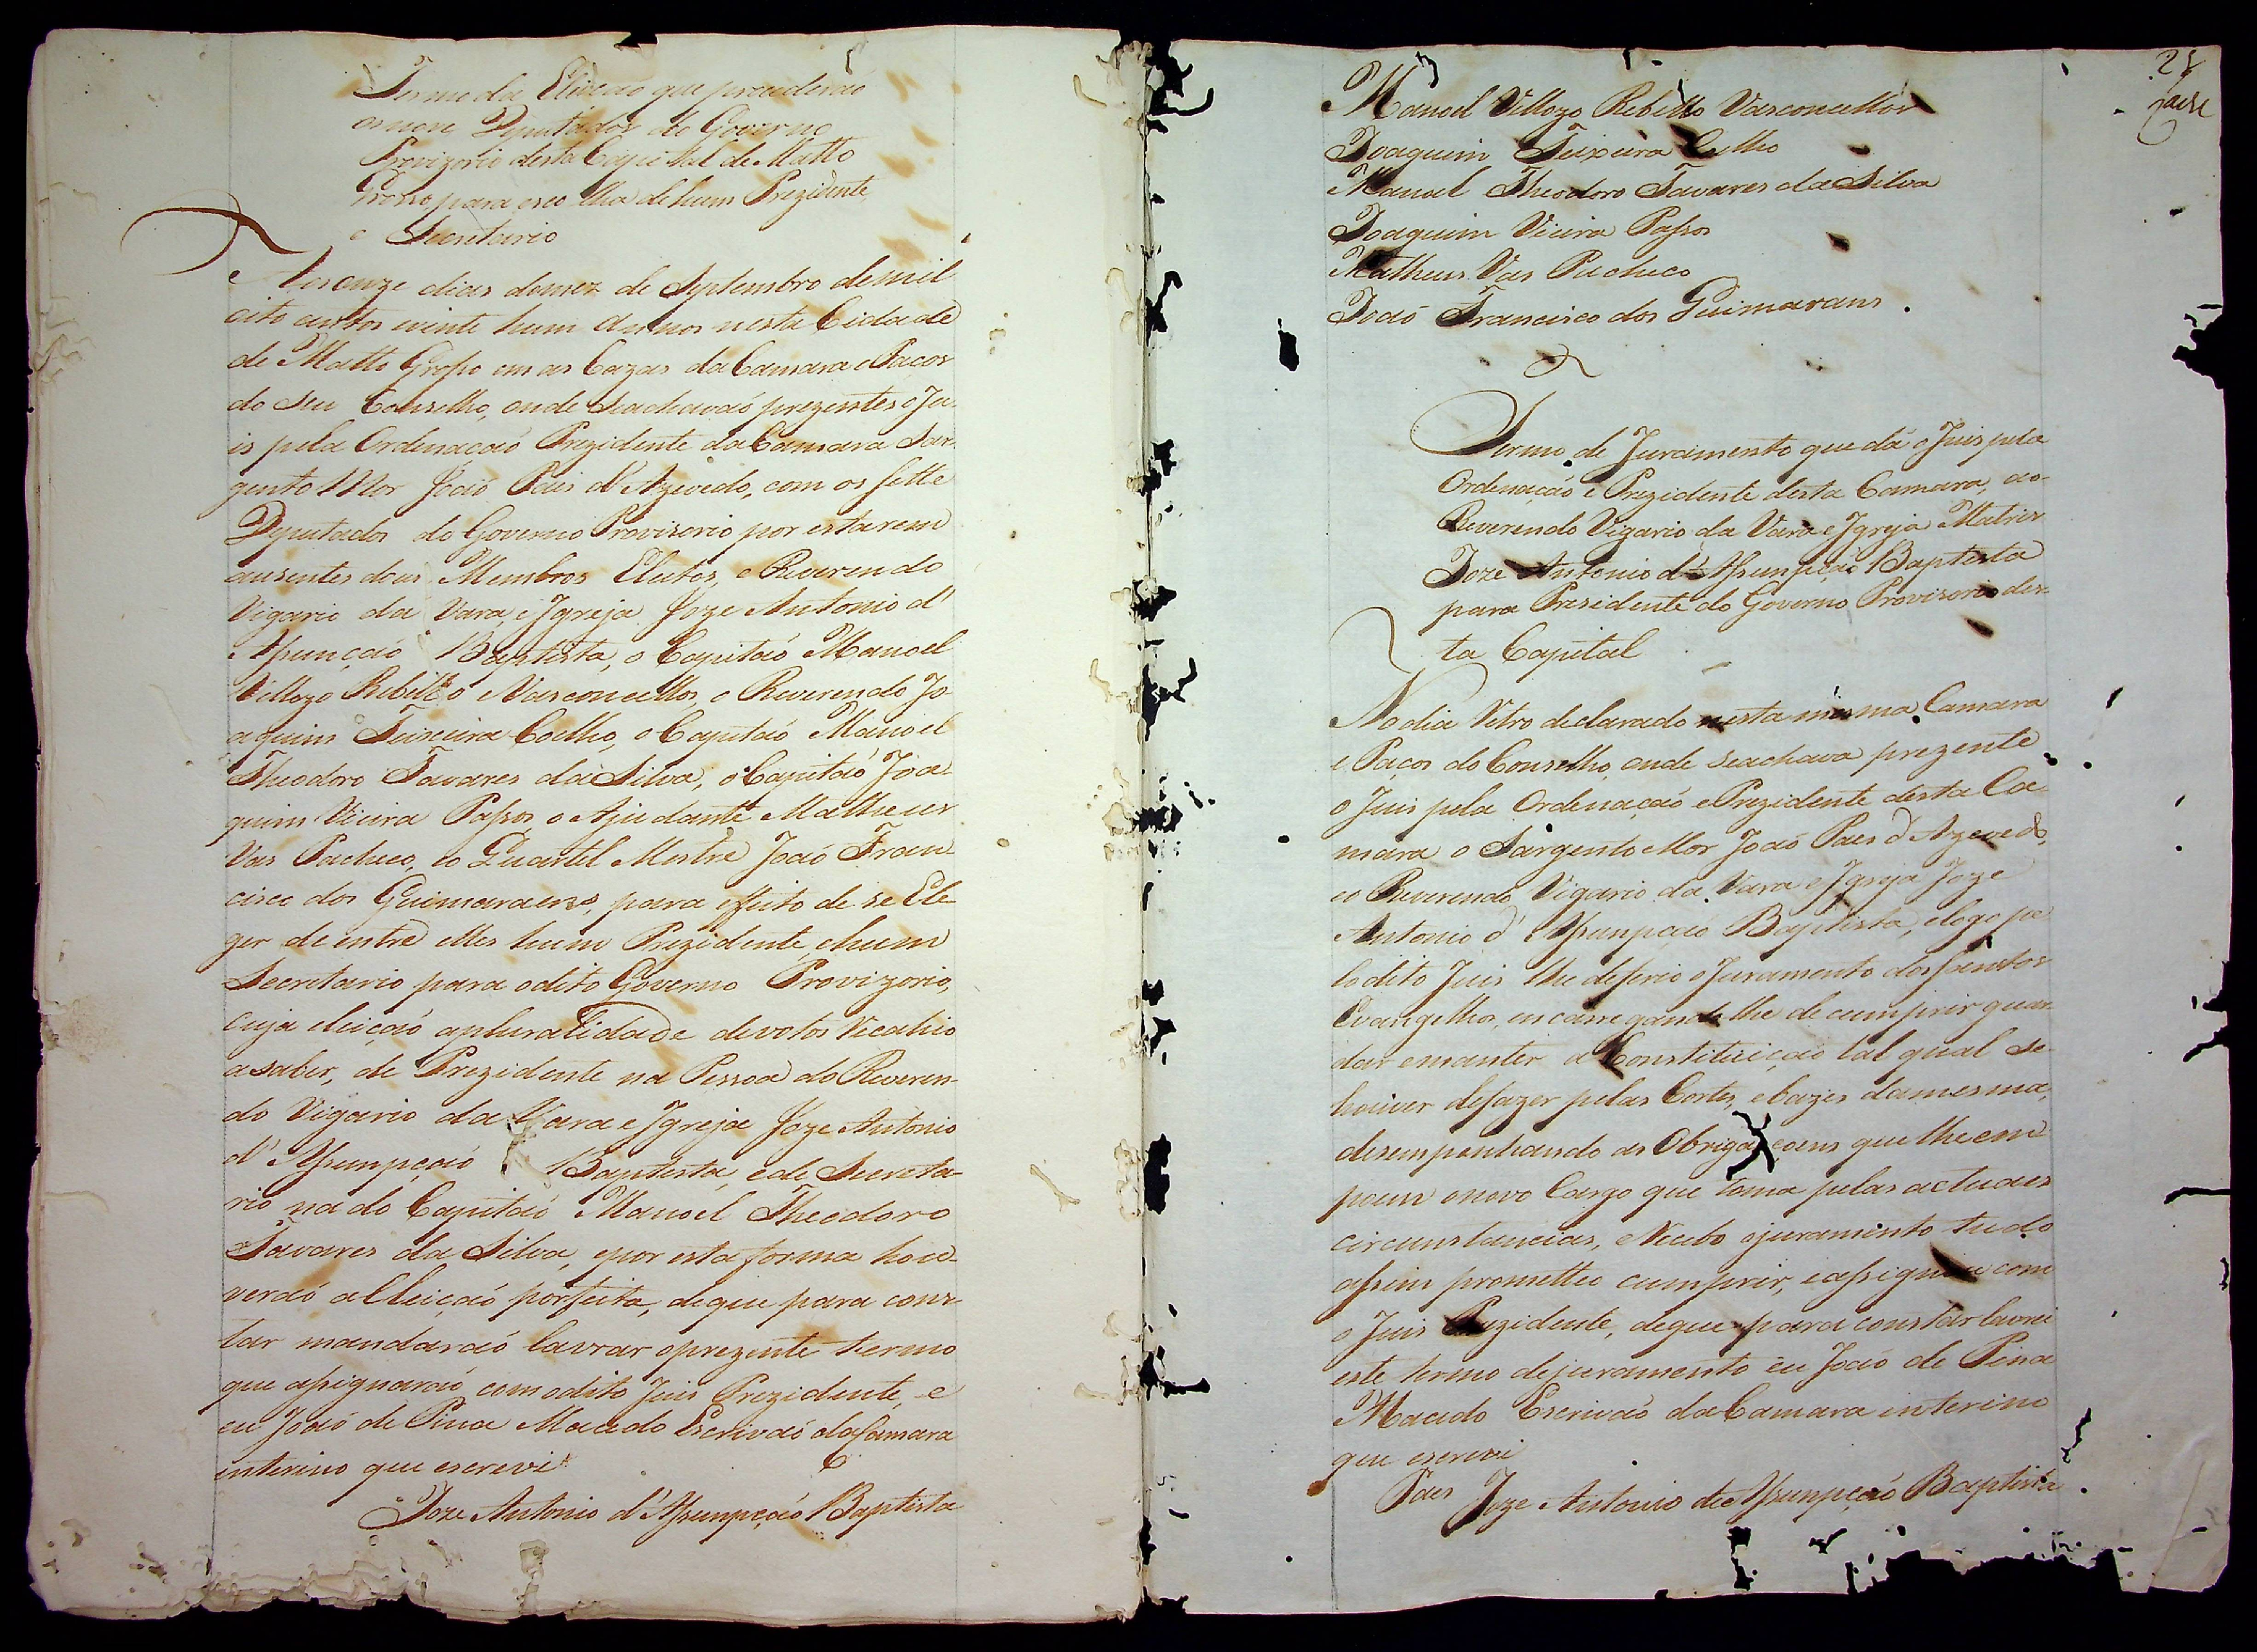 Termo da Eleiçaõ que procederaõ
os nove Deputados do Governo
Provizorio desta Capital de Matto
Grosso para escolha de hum Prezidente,
e Secretario
Aos onze dias do mez de Septembro de mil
oito centos evinte hum Annos nesta Cidade
de Matto Groſso em as Cazas da Camara e Pacos
do seu Conselho, onde seachavaõ prezentes o Ju
is pela Ordenacaõ Prezidente da Camara Sar
gento Mor Joaõ Paes d'Azevedo, com os sette
Deputados do Governo Provisorio por estarem
ausentes dous Membros Eleitos, o Reverendo
Vigario da Vara, e Igreja Joze Antonio d'
Aſunçaõ Baptista, o Capitaõ Manoel
Vellozo Rebello e Vasconcellos, o Reverendo Jo
aquim Teixeira Coelho, o Capitaõ Manoel
Theodoro Tavares da Silva, o Capitaõ Joa
quim Vieira Paſsos, o Ajudante Matheus
Vas Pacheco, eo Quartel Mestre Joaõ Fran
cisco dos Guimaraens, para effeito de se Ele
ger de entre elles hum Prezidente, ehum
Secretario para odito Governo Provizorio,
cuja eleiçaõ apluralidade devotos Recahio
asaber, de Prezidente na Pessoa do Reveren-
do Vigario da Vara e Igreja Joze Antonio
d'Aſsumpçaõ Baptista, ede Secreta-
rio na do Capitaõ Manoel Theodoro
Tavares da Silva, epor esta forma hou-
veraõ aEleiçaõ porfeita, deque para cons
tar mandaraõ lavrar oprezente termo
que aſsignaraõ com odito Juis Prezidente, e
eu Joaõ de Pina Macedo Escrivaõ da Camara
interino que escrevi
Joze Antonio d'Aſsumpçaõ Baptista
Manoel Vellozo Rebello Vasconcellos
Joaquim Teixeira Coelho
Manoel Theodoro Tavares da Silva
Joaquim Vieira Paſsos
Matheus Vas Pacheco
Joaõ Francisco dos Guimarans.
Termo de Juramento que dá o Juis pela
Ordenaçaõ e Prezidente desta Camara, ao
Reverendo Vigario da Vara e Igreja Matris
Joze Antonio d'Aſsumpçaõ Baptista
para Presidente do Governo Provisorio des
ta Capital
No dia Retro declarado nesta mesma Camara
e Paços do Conselho, onde seachava prezente
o Juis pela Ordenaçaõ e Prezidente desta Ca
mara o Sargento Mor Joaõ Paes d'Azevedo,
eo Reverendo Vigario da Vara e Igreja Joze
Antonio d'Aſsumpçaõ Baptista, elogo pe
lo dito Juis lhe deferio o Juramento dos Santos
Evangelhos, encarregandolhe de cumprir guar
dar emanter a Constituiçaõ tal qual se
houver defazer pelas Cortes, ebazes damesma,
desempenhando as Obrigaçoens que lhe em
poem onovo Cargo que toma pelas actuaes
circunstancias, eRecebo ojuramento tudo
aſsim prometteo cumprir, eaſsignou com
o Juis Prezidente, deque para constar lavrei
este termo dejuramento eu Joaõ de Pina
Macedo Escrivaõ da Camara interino
que escrevi
Paes Joze Antonio de Aſsumpçaõ Baptista.